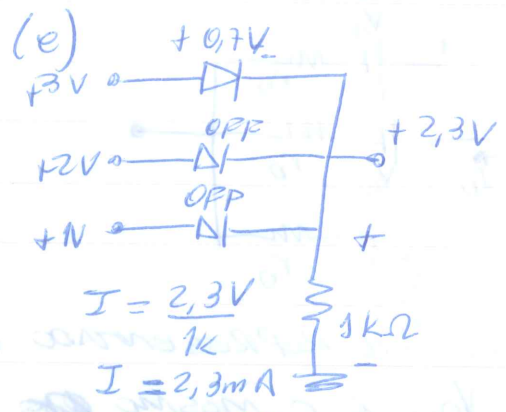 (e)
+ 0,7V -
+3V
OFF
+2V
+ 2,3V
OFF
+1V
+
I = 2,3V
1K
1kΩ
-
I = 2,3mA